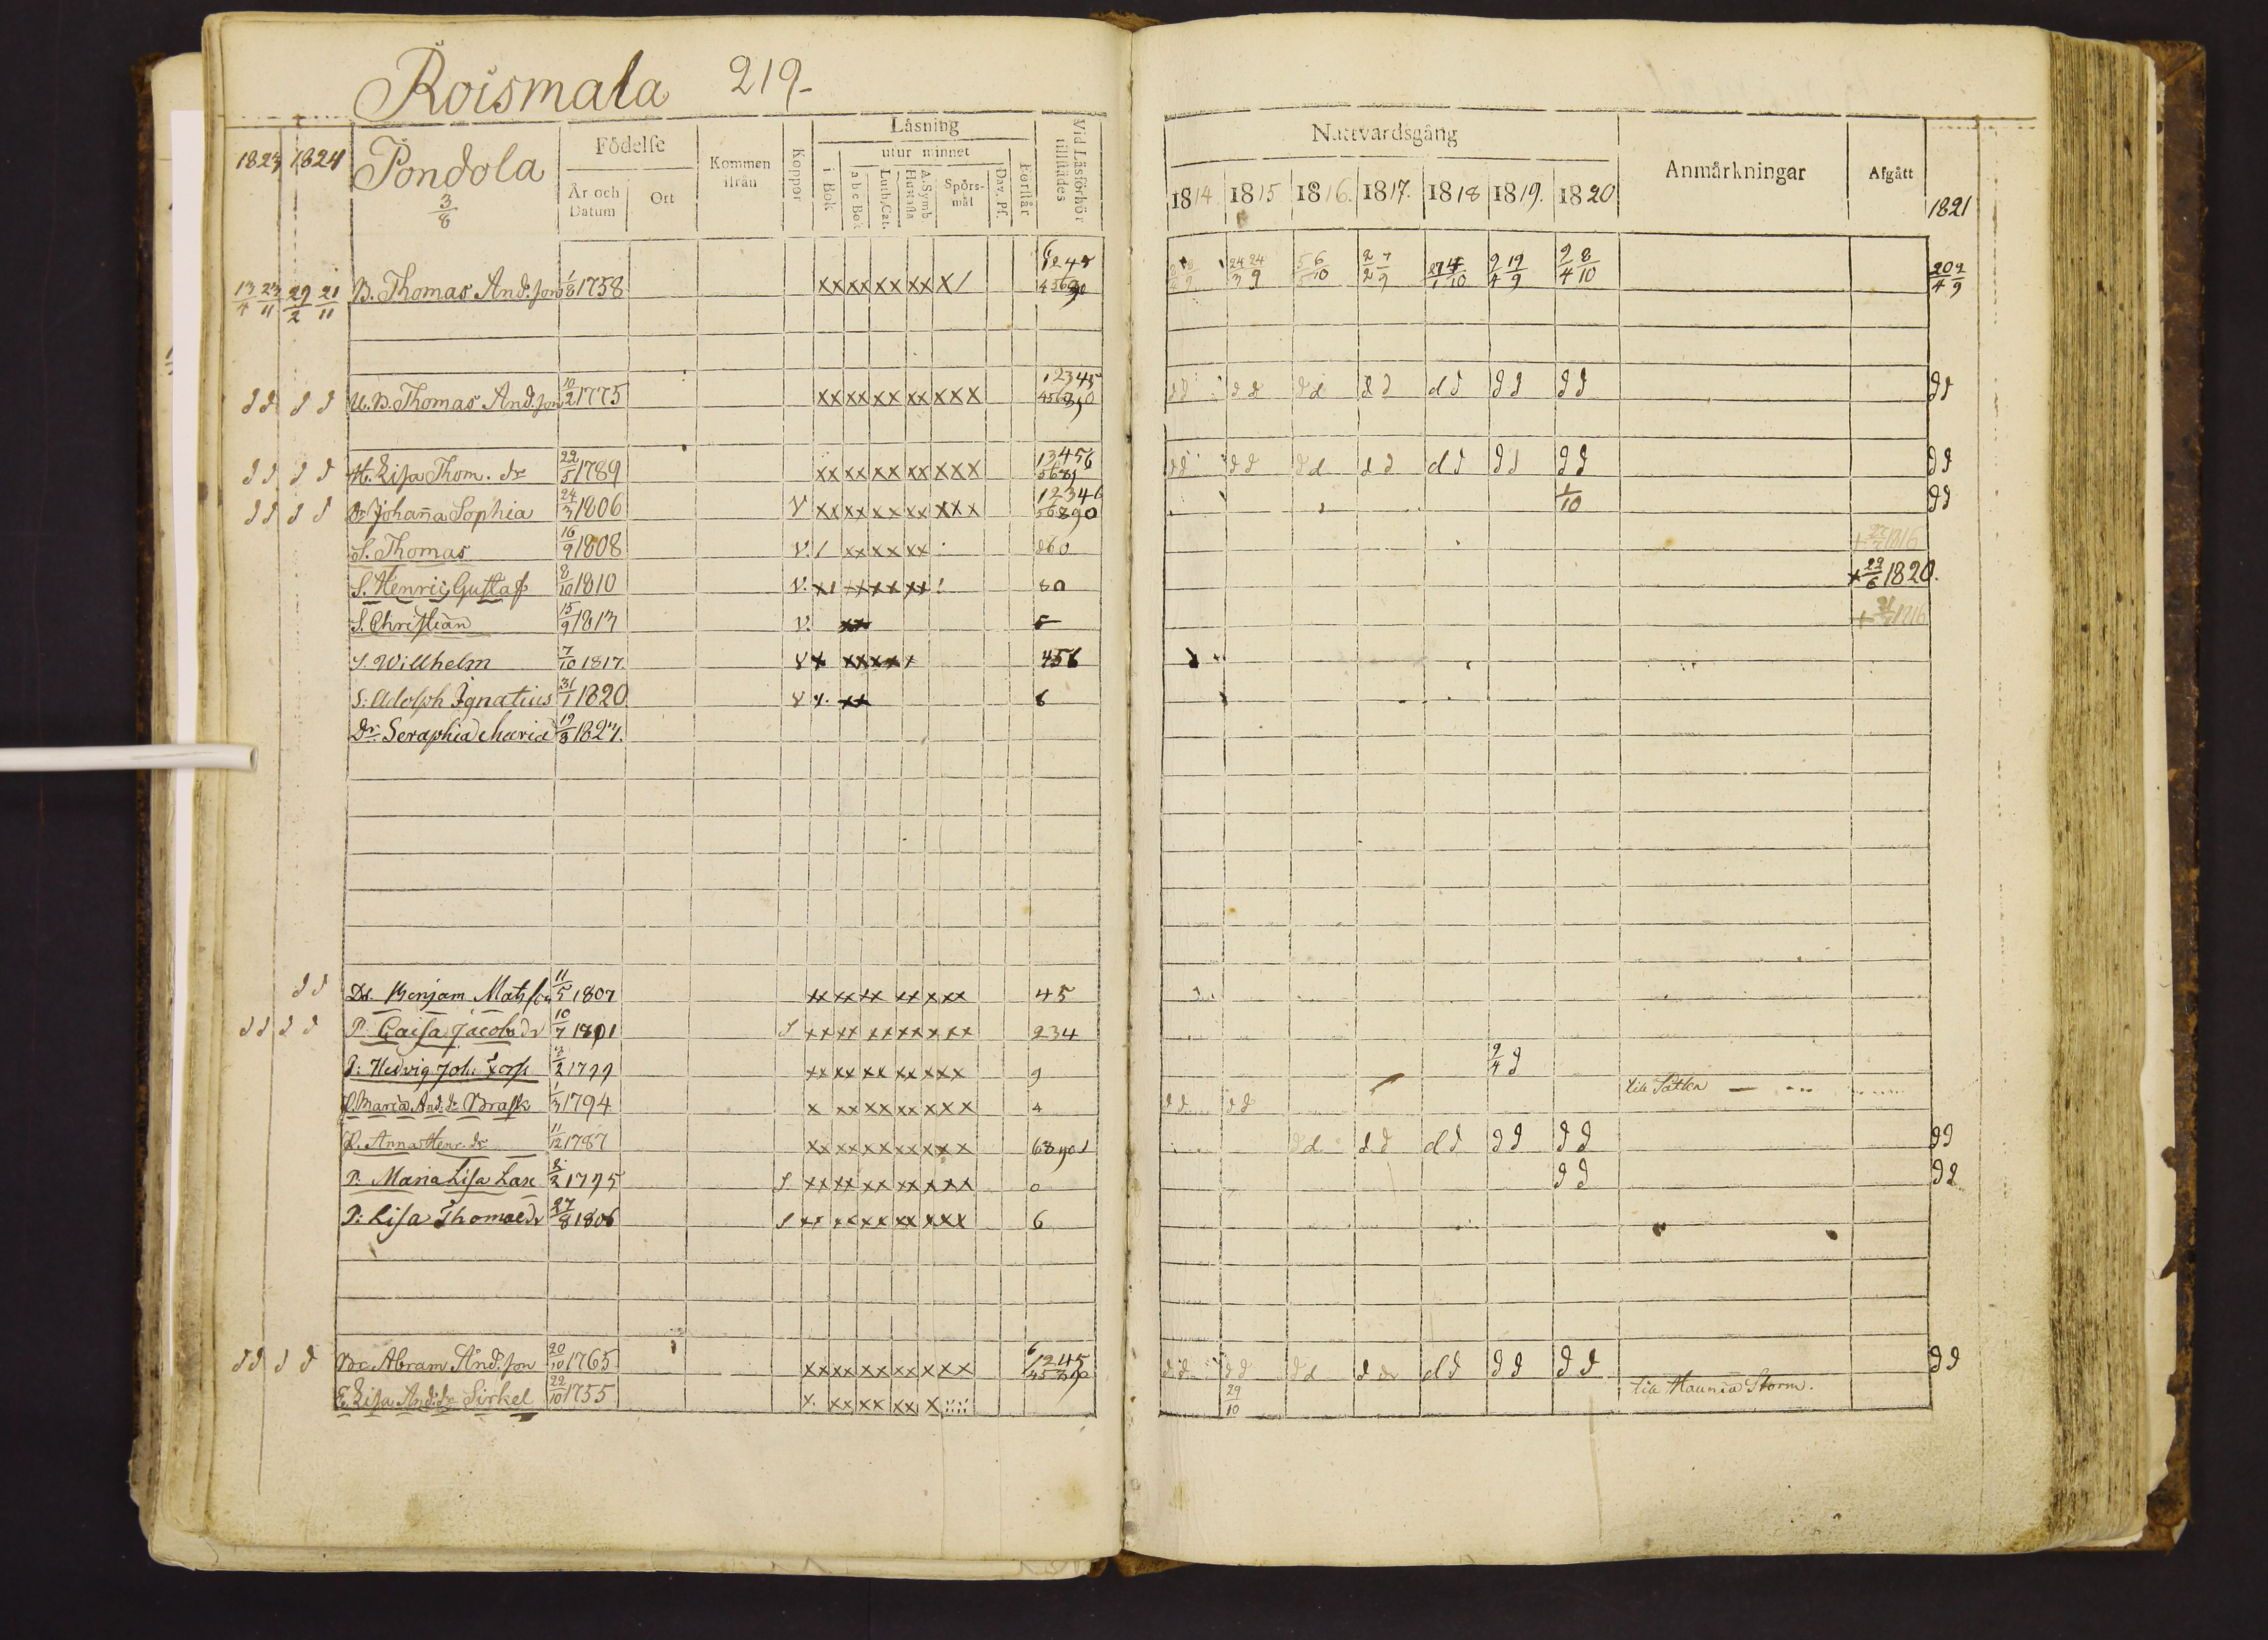 Roismala 219
1823 1824 Pondola 3/8 Födelse År och Datum Ort Kommen ifrån Koppor Läsning utur minnet i Bok a b c Bok Luth. Cat. Hustafla A. Symb. Spörsmål Dav. Ps. Förstår Vid Läsförhör tillstädes Nattvardsgång 1814 1815 1816. 1817. 1818 1819. 1820 Anmärkningar Afgått 1821
13/4 23/11 29/2 21/11 B. Thomas And.son 1/8 1758 xx xx xx xx x/ 24 24/3 9 5 6/5 10 2 7/2 9 27 4/1 10 9 19/4 9 9 8/4 10 20 2/4 9
d d d d U.B. Thomas And.son 10/2 1775 xx xx xx xx xxx 12345 d d d d d d d d d d d d d d d d
d d d d H. Lisa Thom. dr 22/5 1789 xx xx xx xx xxx 13456 d d d d d d d d d d d d d d d d
d d d d Dr Johaña Sophia 24/3 1806 V xx xx xx xx xxx 12346 56890 1/10 d d
S. Thomas 16/9 1808 V. / xx xx xx 860 1816
S. Henric Gustaf 8/10 1810 V. x/ xx xx xx 80 + 22/6 1820.
S. Christian 15/9 1813 V. xx 5
S. Willhelm 7/10 1817. V x xx xx x 456
S: Adolph Ignatius 31/1 1820 V x. xx 6
Dr. Seraphia Maria 19/3 1823.
d d Dr. Benjam Matsson 11/5 1807 xx xx xx xx xxx 45
d d d d P. Caisa Jacobs dr 10/7 1801 S xx xx xx xx xxx 234
P: Hedvig Joh: 2/2 1799 xx xx xx xx xxx 9 9/4 d
P. Maria And. dr Brask 1/3 1794 x xx xx xx xxx 4 d d d d till Sätlea
P. Anna Henr. dr 11/12 1787 xx xx xx xx xxx 68901 d d d d d d d d d d d d
P. Maria Lisa Lax 2/2 1795 S xx xx xx xx xxx 0 d d d d
P: Lisa Thomae dr 27/8 1806 S xx xx xx xx xxx 6
d d d d Br. Abram And.son 20/10 1765 xx xx xx xx xxx 1245 d d d d d d d d d d d d d d d d
E. Lisa And. dr Sirkel 22/10 1755 x. xx xx xx x 29/10 till Haunia Storm.